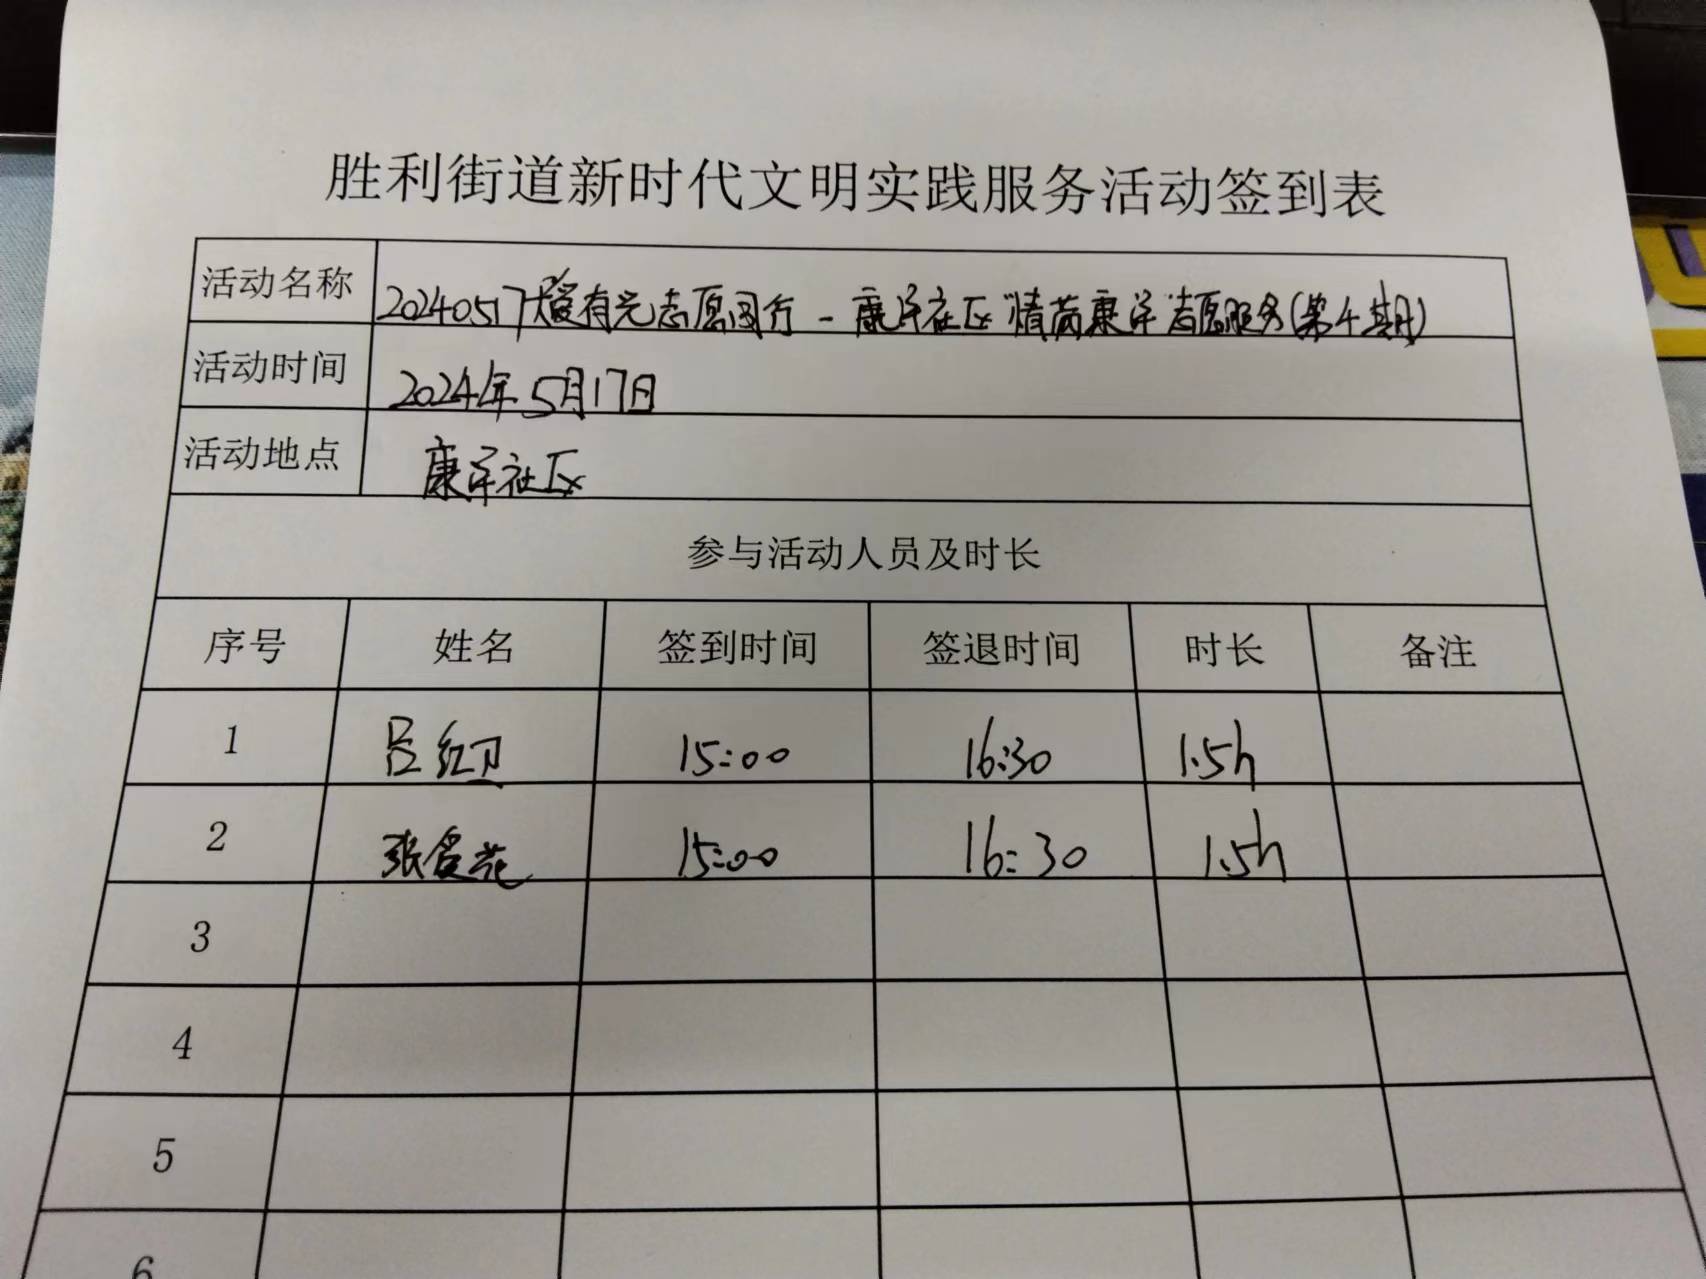 胜利街道新时代文明实践服务活动签到表
活动名称 20240517爱有光志愿同行-康宁社区"情満康宁"志愿服务(第4期)
活动时间 2024年5月17日
活动地点 康宁社区
参与活动人员及时长
序号 姓名 签到时间 签退时间 时长 备注
1 吕红卫 15:00 16:30 1.5h
2 张 花 15:00 16:30 1.5h
3
4
5
6